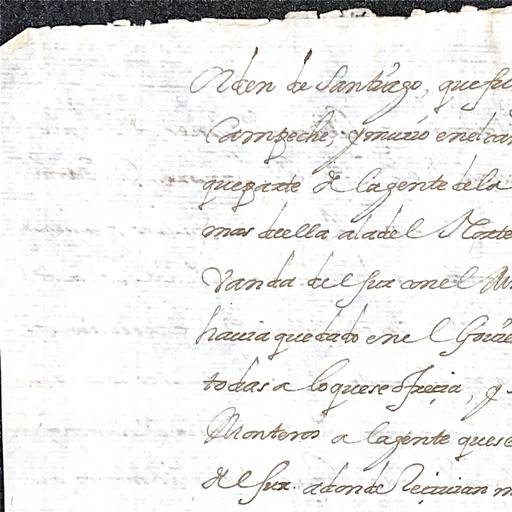 Orden de Santiago, que fu
Campeche, y murió en el ca
que parte de la gente de la
mas de ella a la del Norte
Vanda del sur con el M
havia quedado en el Gove
todas a lo que se ofreçia, y
Monteros a la gente que se
del sur. a donde